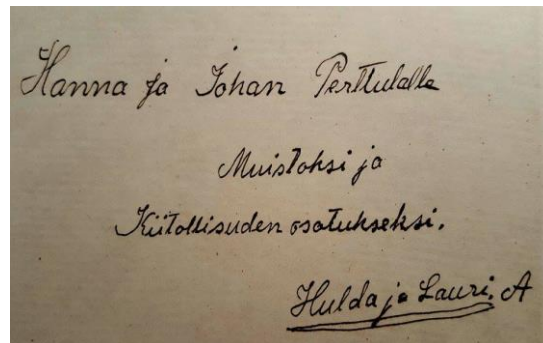 Hanna ja Johan Perttulalle
Muistoksi ja
Kiitollisuden osotukseksi.
Hulda ja Lauri. A